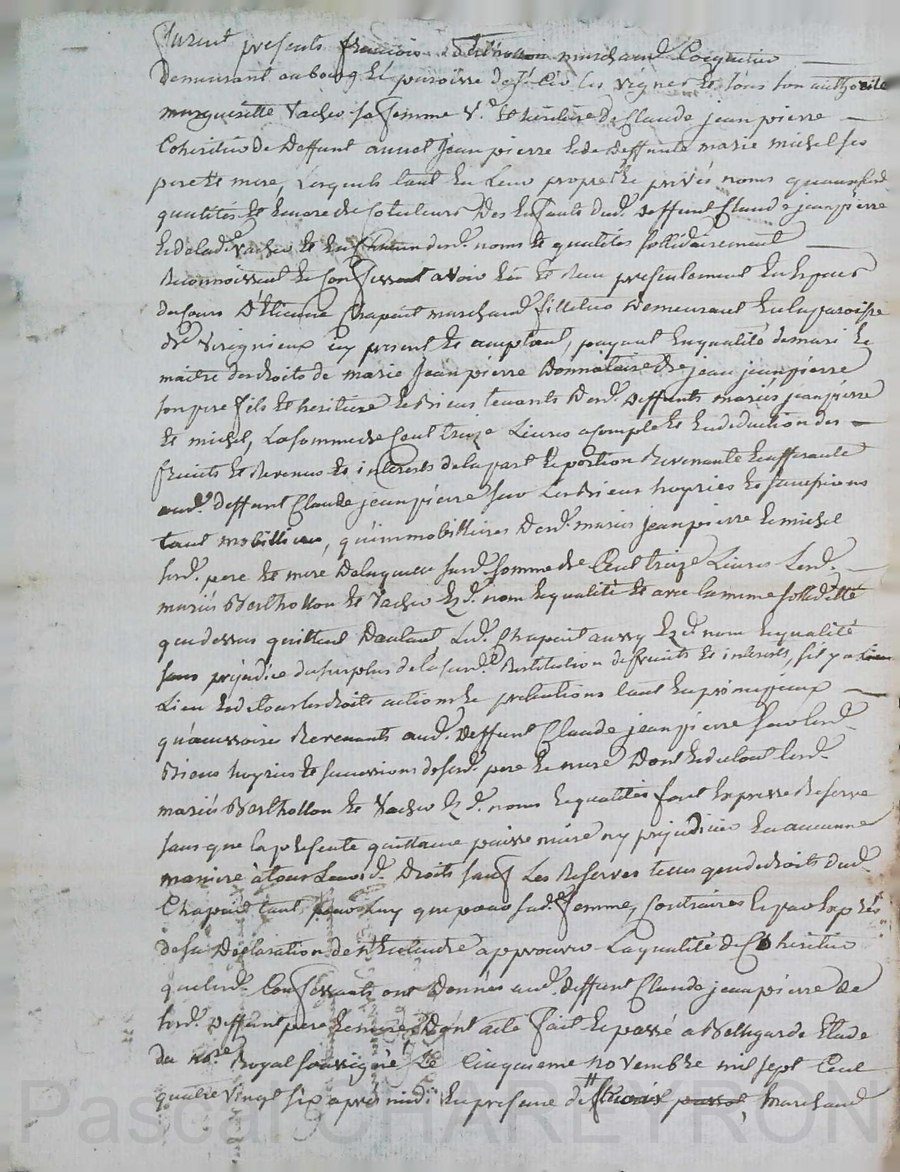 furent presents françois Berthollon marchand Coquetier
demeurant au bourg et paroisse de st Cir les vignes et sous son authorité
margueritte Vacher sa femme Ve. et heritiere de Claude jeanpierre
Coheritier de deffunt annet Jeanpierre et de deffunte marie michel ses
pere et mere, Lesquels tant en Leur propre et privés noms quaux
qualités et encore de Cotuteurs des Enfants dud. deffunt Claude jeanpierre
et de lad. Vacher et en desd. noms et qualités sollidairement
Reconnoissent et Confessent avoir Eu et Reçu presentement En Especes
du Cours D'Etienne Chapuit marchand filletier demeurant En la paroisse
de Virignieux icy present et acceptant, payant En qualité de mari et
maitre des droits de marie Jeanpierre Donnataire de jean jeanpierre
son pere fils et heritier et Biens tenants desd. deffunts mariés jeanpierre
et michel, La somme de Cent treize Livres acompte et En deduction des
fruits et Revenus et interets de la part et portion Revenante et afferante
aud. deffunt Claude jeanpierre sur Les Biens hoyries et successions
tant mobilliers, qu'immobilliers desd. mariés jeanpierre et michel
sesd. pere et mere de laquelle susd. somme de Cent treize Livres Lesd.
mariés Berthollon et Vacher Ezd. nom et qualité et avec la meme sollidité
que dessus quittent D'autant Led. Chapuit aussy Ezd. nom et qualité
sans prejudice du surplus de la susde. Restitution de fruits et interets, s'il y a
Lieu et de tous les droits actions et pretentions tant En principaux
qu'accessoires Revenants aud. deffunt Claude jeanpierre sur Lesd.
Biens hoyries et successions de sesd. pere et mere Dont et du tout Lesd.
mariés Berthollon et Vacher Ezd. noms et qualités font Expresse Reserve
sans que la presente quittance puisse nuire ny prejudicier En aucune
maniere à tous Leursd. Droits sauf Les Reserves telles que de droit dud.
Chapuit tant pour Luy que pour sad. femme, Contraires et par Exprès
de sa Déclaration de n'Entendre approuver La qualité de Coheritier
que Lesd. Confessants ont Donnés aud. deffunt Claude jeanpierre de
sesd. deffunt pere et mere, Dont acte fait et passé a Bellegarde Etude
du nore Royal soussigné Le Cinquieme novembre mil sept Cent
quatre vingt six après midi En presence de marchand
Pascal CHAREYRON